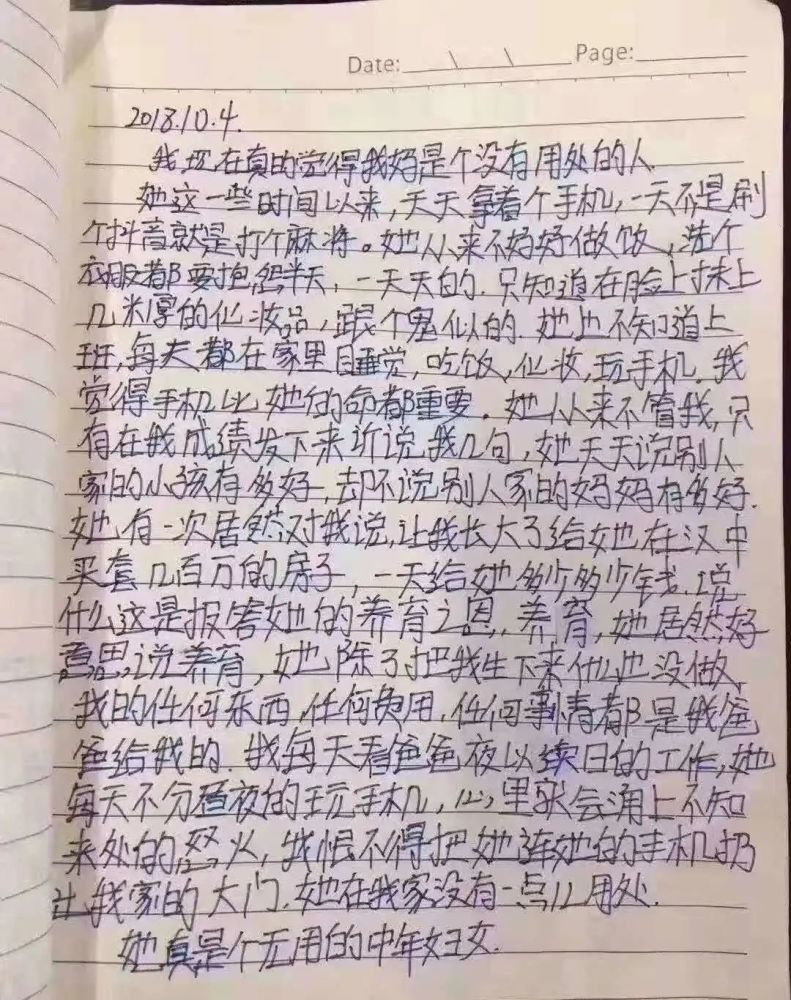 Date: \ \ Page:
2018.10.4.
我现在真的觉得我妈是个没有用处的人
她这一些时间以来,天天拿着个手机,一天不是刷
个抖音就是打个麻将。她从来不好好做饭,洗个
衣服都要抱怨半天,一天天的.只知道在脸上抹上
几米厚的化妆品,跟个鬼似的.她也不知道上
班,每天都在家里睡觉,吃饭,化妆,玩手机.我
觉得手机比她的命都重要.她从来不管我,只
有在我成绩发下来才说我几句,她天天说别人
家的小孩有多好,却不说别人家的妈妈有多好.
她有一次居然对我说,让我长大了给她在汉中
买套几百万的房子,一天给她多少多少钱.说
什么这是报答她的养育之恩,养育,她居然好
意思说养育,她除了把我生下来什么也没做,
我的任何东西,任何费用,任何事情都是我爸
爸给我的.我每天看爸爸夜以续日的工作,她
每天不分昼夜的玩手机,心里就会涌上不知
来处的怒火,我恨不得把她连她的手机扔
出我家的大门.她在我家没有一点儿用处.
她真是个无用的中年妇女.